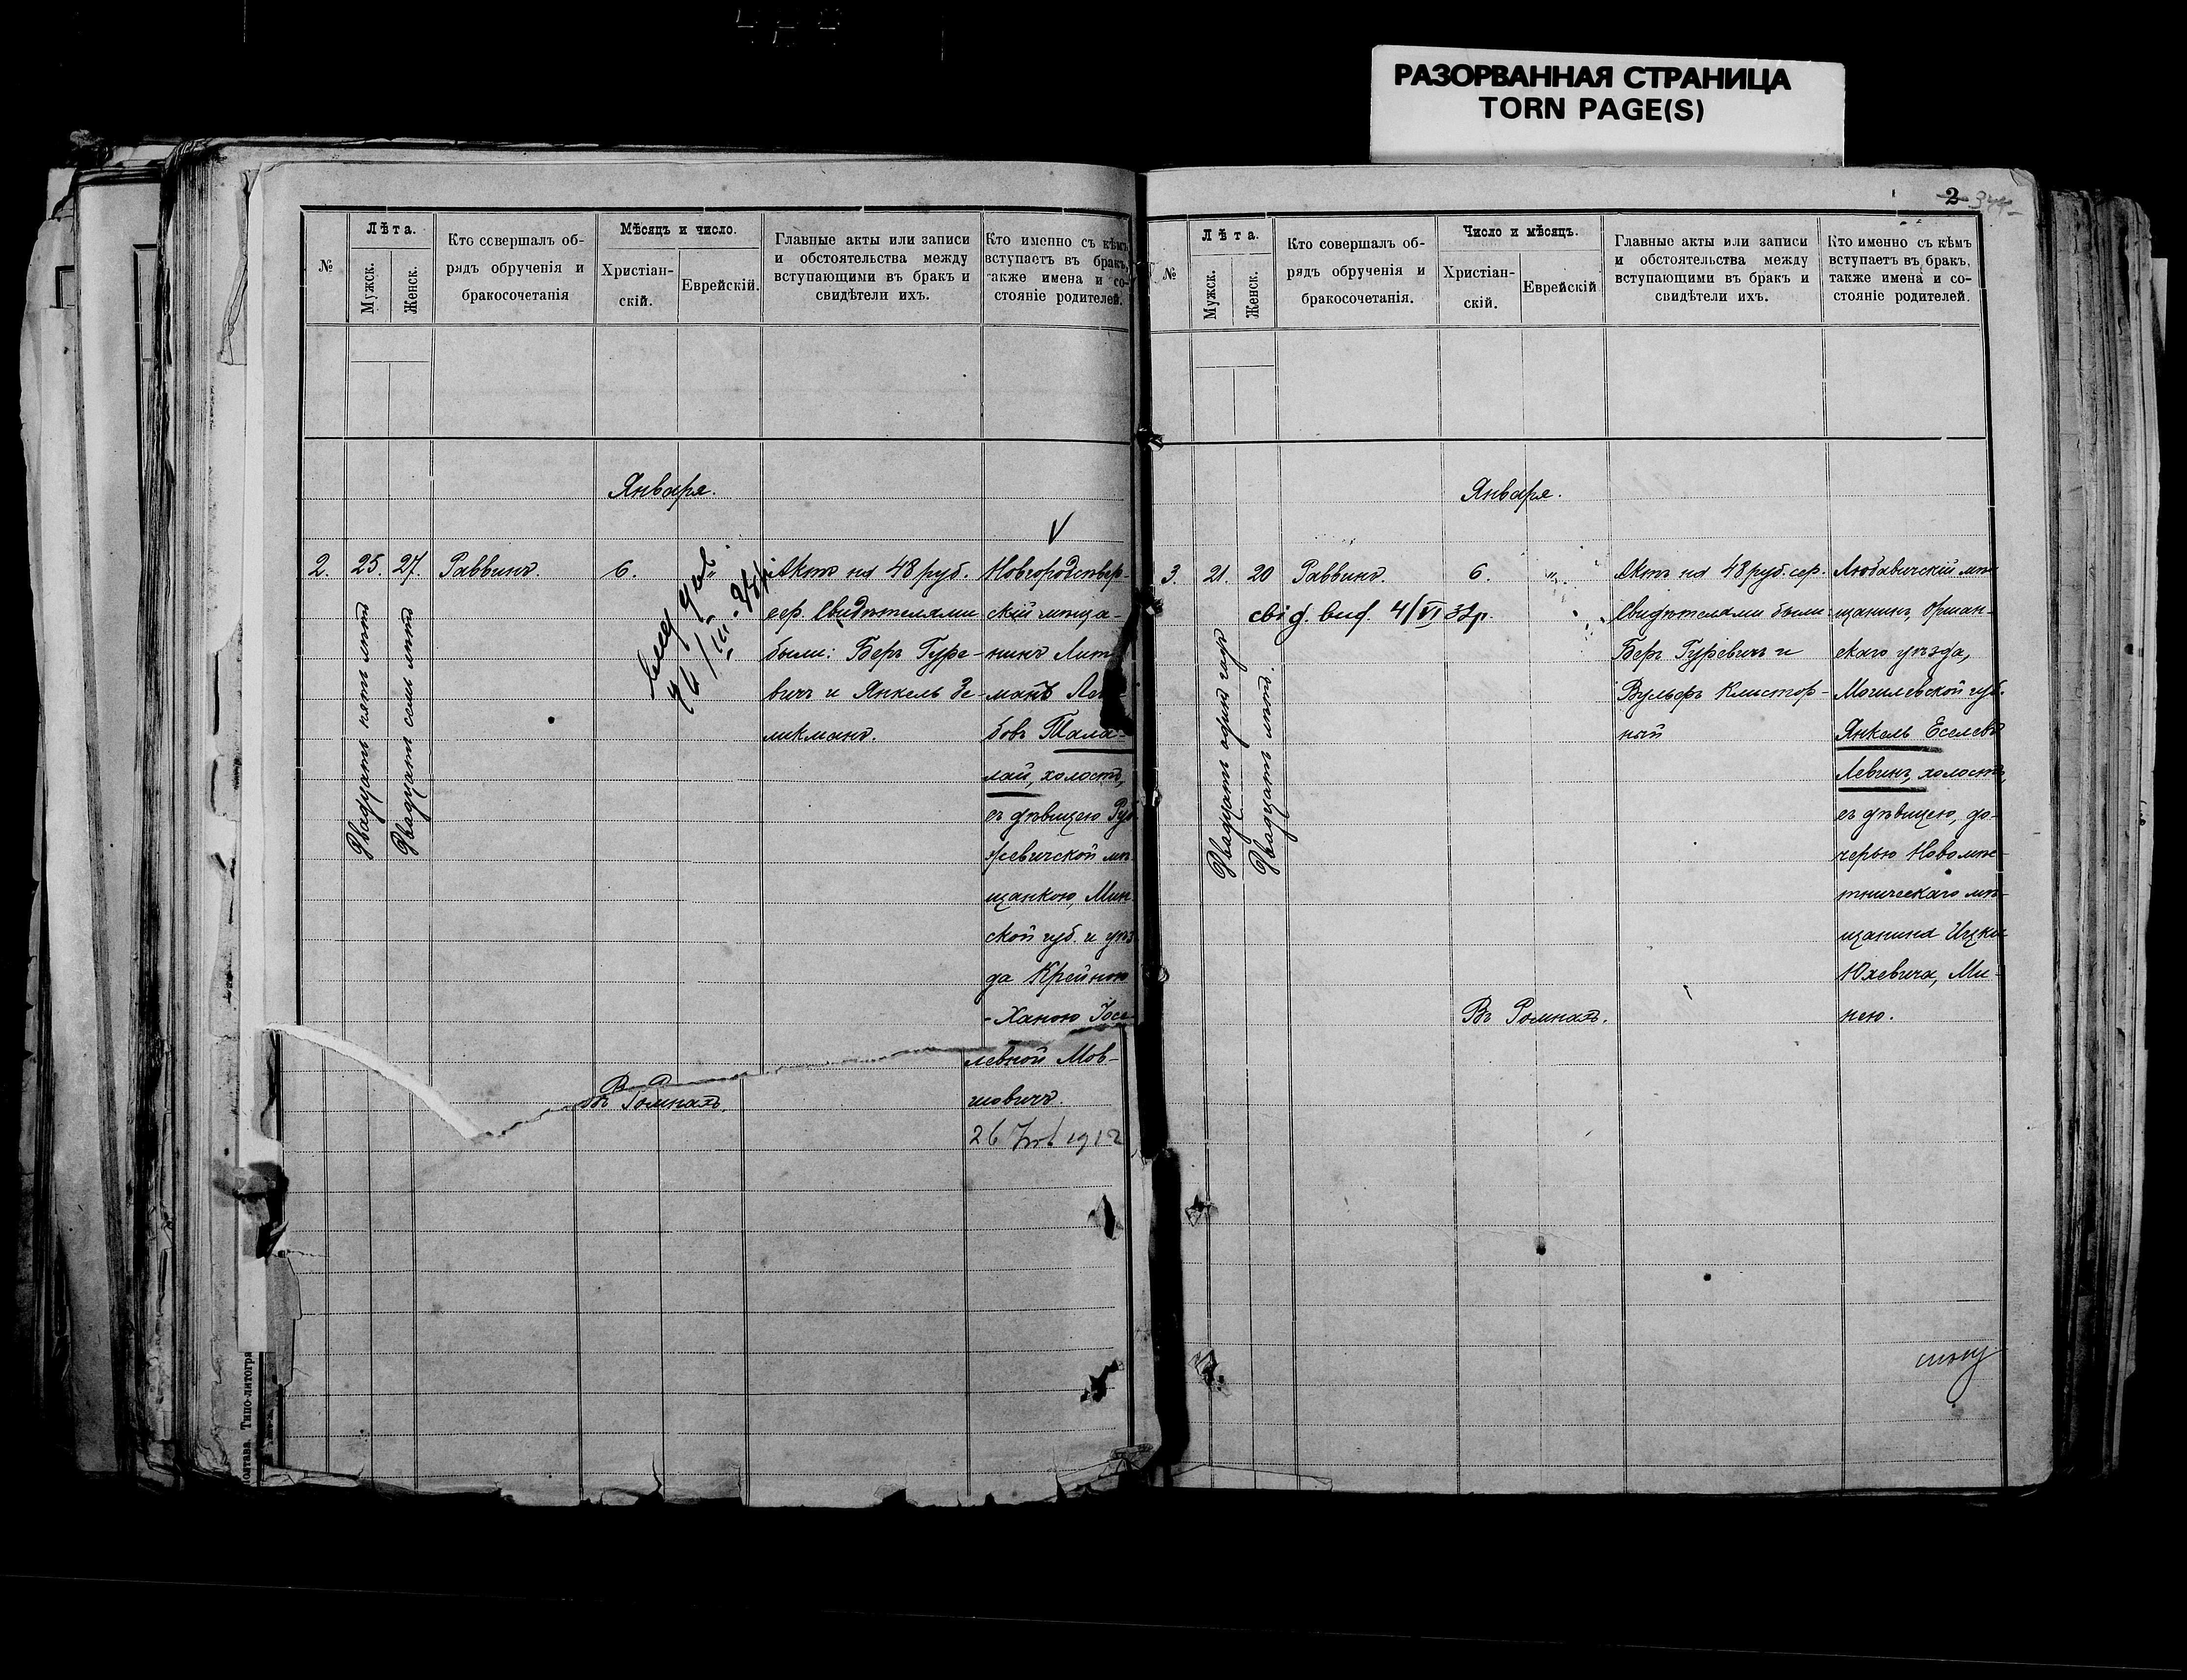 РАЗОРВАННАЯ СТРАНИЦА
TORN PAGE(S)
№
Лѣта.
Мужск.
Женск.
Кто совершалъ об-
рядъ обрученія и
бракосочетанія
Мѣсяцъ и число.
Христіан-
скій.
Еврейскій.
Главные акты или записи
и обстоятельства между
вступающими въ бракъ и
свидѣтели ихъ.
Кто именно съ кѣмъ
вступаетъ въ бракъ,
также имена и со-
стояніе родителей.
Января.
2.
25.
Двадцать пять лѣтъ
27.
Двадцать семь лѣтъ
Раввинъ.
6.
"
Актъ на 48 руб.
сер. Свидѣтелями
были: Беръ Гуре-
вичъ и Янкель Зе-
ликманъ.
Новгородсѣвер-
скій мѣща-
нинъ
бовъ Тала-
лай, холостъ,
съ дѣвицею
жевичской мѣ-
щанкою, Мин-
ской губ. и уѣз-
да Крейною
-Ханою Іосе-
левной Мов-
шовичъ.
26 1912
Въ Ромнахъ.
Полтава. Типо-литогра
2
№
Лѣта.
Мужск.
Женск.
Кто совершалъ об-
рядъ обрученія и
бракосочетанія.
Число и мѣсяцъ.
Христіан-
скій.
Еврейскій
Главные акты или записи
и обстоятельства между
вступающими въ бракъ и
свидѣтели ихъ.
Кто именно съ кѣмъ
вступаетъ въ бракъ,
также имена и со-
стояніе родителей.
Января.
3.
21.
Двадцать одинъ годъ
20
Двадцать лѣтъ.
Раввинъ.
6.
"
свід. вид. 4/VI 32р.
Актъ на 48 руб. сер.
Свидѣтелями были:
Беръ Гуревичъ и
Вульфъ Клистор-
ный
Любавичскій мѣ-
щанинъ, Оршан-
скаго уѣзда,
Могилевской губ.
Янкель Еселевъ
Левинъ, холостъ,
съ дѣвицею, до-
черью Новомѣс-
тническаго мѣ-
щанина Ицки
Юхевича, Ми-
нею.
Въ Ромнахъ.